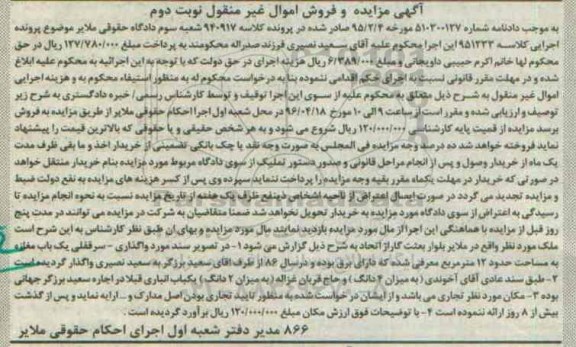 آگهی مزایده و فروش اموال غیر منقول نوبت دوم
به موجب دادنامه شماره ۵۱۰۳۰۰۱۲۷ مورخه ۹۵/۲/۴ صادر شده در پرونده کلاسه ۹۴۰۹۱۷ شعبه سوم دادگاه حقوقی ملایر موضوع پرونده
اجرایی کلاسه ۹۵۱۲۳۳ این اجرا محکوم علیه آقای سعید نصیری فرزند صدراله محکومند به پرداخت مبلغ ۱۲۷/۷۸۰/۰۰۰ ریال در حق
محکوم لها خانم اکرم حبیبی داویجانی و مبلغ ۶/۳۸۹/۰۰۰ ریال هزینه اجرای در حق دولت که با توجه به این اجرائیه به محکوم علیه ابلاغ
شده و در مهلت مقرر قانونی نسبت به اجرای حکم اقدامی ننموده بنا به درخواست محکوم له به منظور استیفاء محکوم به و هزینه اجرایی
اموال غیر منقول به شرح ذیل متعلق به محکوم علیه از سوی این اجرا توقیف و توسط کارشناس رسمی/ خبره دادگستری به شرح زیر
توصیف و ارزیابی شده و مقرر است از ساعت ۹ الی ۱۰ مورخ ۹۶/۰۴/۱۸ در محل شعبه اول اجرا احکام حقوقی ملایر از طریق مزایده به فروش
برسد مزایده از قیمت پایه کارشناسی ۱۲۰/۰۰۰/۰۰۰ ریال شروع می شود و به هر شخص حقیقی و یا حقوقی که بالاترین قیمت را پیشنهاد
نماید فروخته خواهد شد ده درصد وجه مزایده فی المجلس به صورت وجه نقد یا چک بانکی تضمینی از خریدار اخذ و ما بقی ظرف مدت
یک ماه از خریدار وصول و پس از انجام مراحل قانونی و صدور دستور تملیک از سوی دادگاه مربوط مورد مزایده بنام خریدار منتقل خواهد
در صورتی که خریدار در مهلت یکماه مقرر بقیه وجه مزایده را پرداخت ننماید سپرده وی پس از کسر هزینه های مزایده به نفع دولت ضبط
و مزایده تجدید می گردد در صورت ایصال اعتراض از ناحیه اشخاص ذینفع ظرف یک هفته از تاریخ مزایده نسبت به نحوه انجام مزایده تا
رسیدگی به اعتراض از سوی دادگاه مورد مزایده به خریدار تحویل نخواهد شد ضمنا متقاضیان به شرکت در مزایده می توانند در مدت پنج
روز قبل از مزایده با هماهنگی این اجرا از مال مورد مزایده بازدید نمایند مال مورد مزایده و بهای ان طبق نظر کارشناس به این شرح است
ملک مورد نظر واقع در ملایر بلوار بعثت گاراژ اتحاد به شرح ذیل گزارش می شود ۱- در تصویر سند مورد واگذاری - سرقفلی یک باب مغازه
به مساحت حدود ۱۲ مترمربع معرفی شده که دارای برق بوده و در سال ۸۶ از طرف اقای سعید برزگر به سعید نصیری واگذار گردیده است
۲- طبق سند عادی آقای آخوندی (به میزان ۴ دانگ) و حاج قربان غزاله (به میزان ۲ دانگ) یکباب انباری قبلا در اجاره سعید برزگر جهانی
بوده ۳- مکان مورد نظر تجاری می باشد و از ایشان در خواست شده به منظور تایید تجاری بودن اصل مدارک و ... ارایه نماید و پس از گذشت
بیش از ۸ روز ارائه ننموده است ۴- با توضیحات فوق ارزش مکان مبلغ ۱۲۰/۰۰۰/۰۰۰ ریال برآورد گردیده است.
۸۶۶ مدیر دفتر شعبه اول اجرای احکام حقوقی ملایر